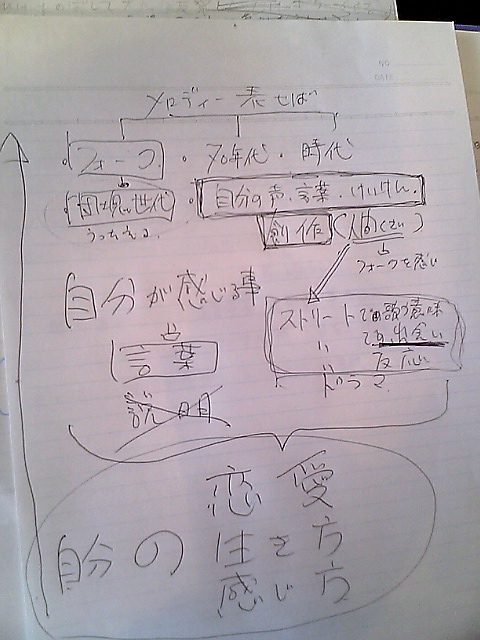 メロディー表せば
フォーク・70年代・時代
・団塊世代・自分の声、言葉、けいけん.
うったえる
創作(人間くさい)
フォークを感じ
自分が感じる事
ストリートで歌う意味
〃 で出会い
〃 反応
ドラマ
言葉
説明
恋愛
自分の生き方
感じ方